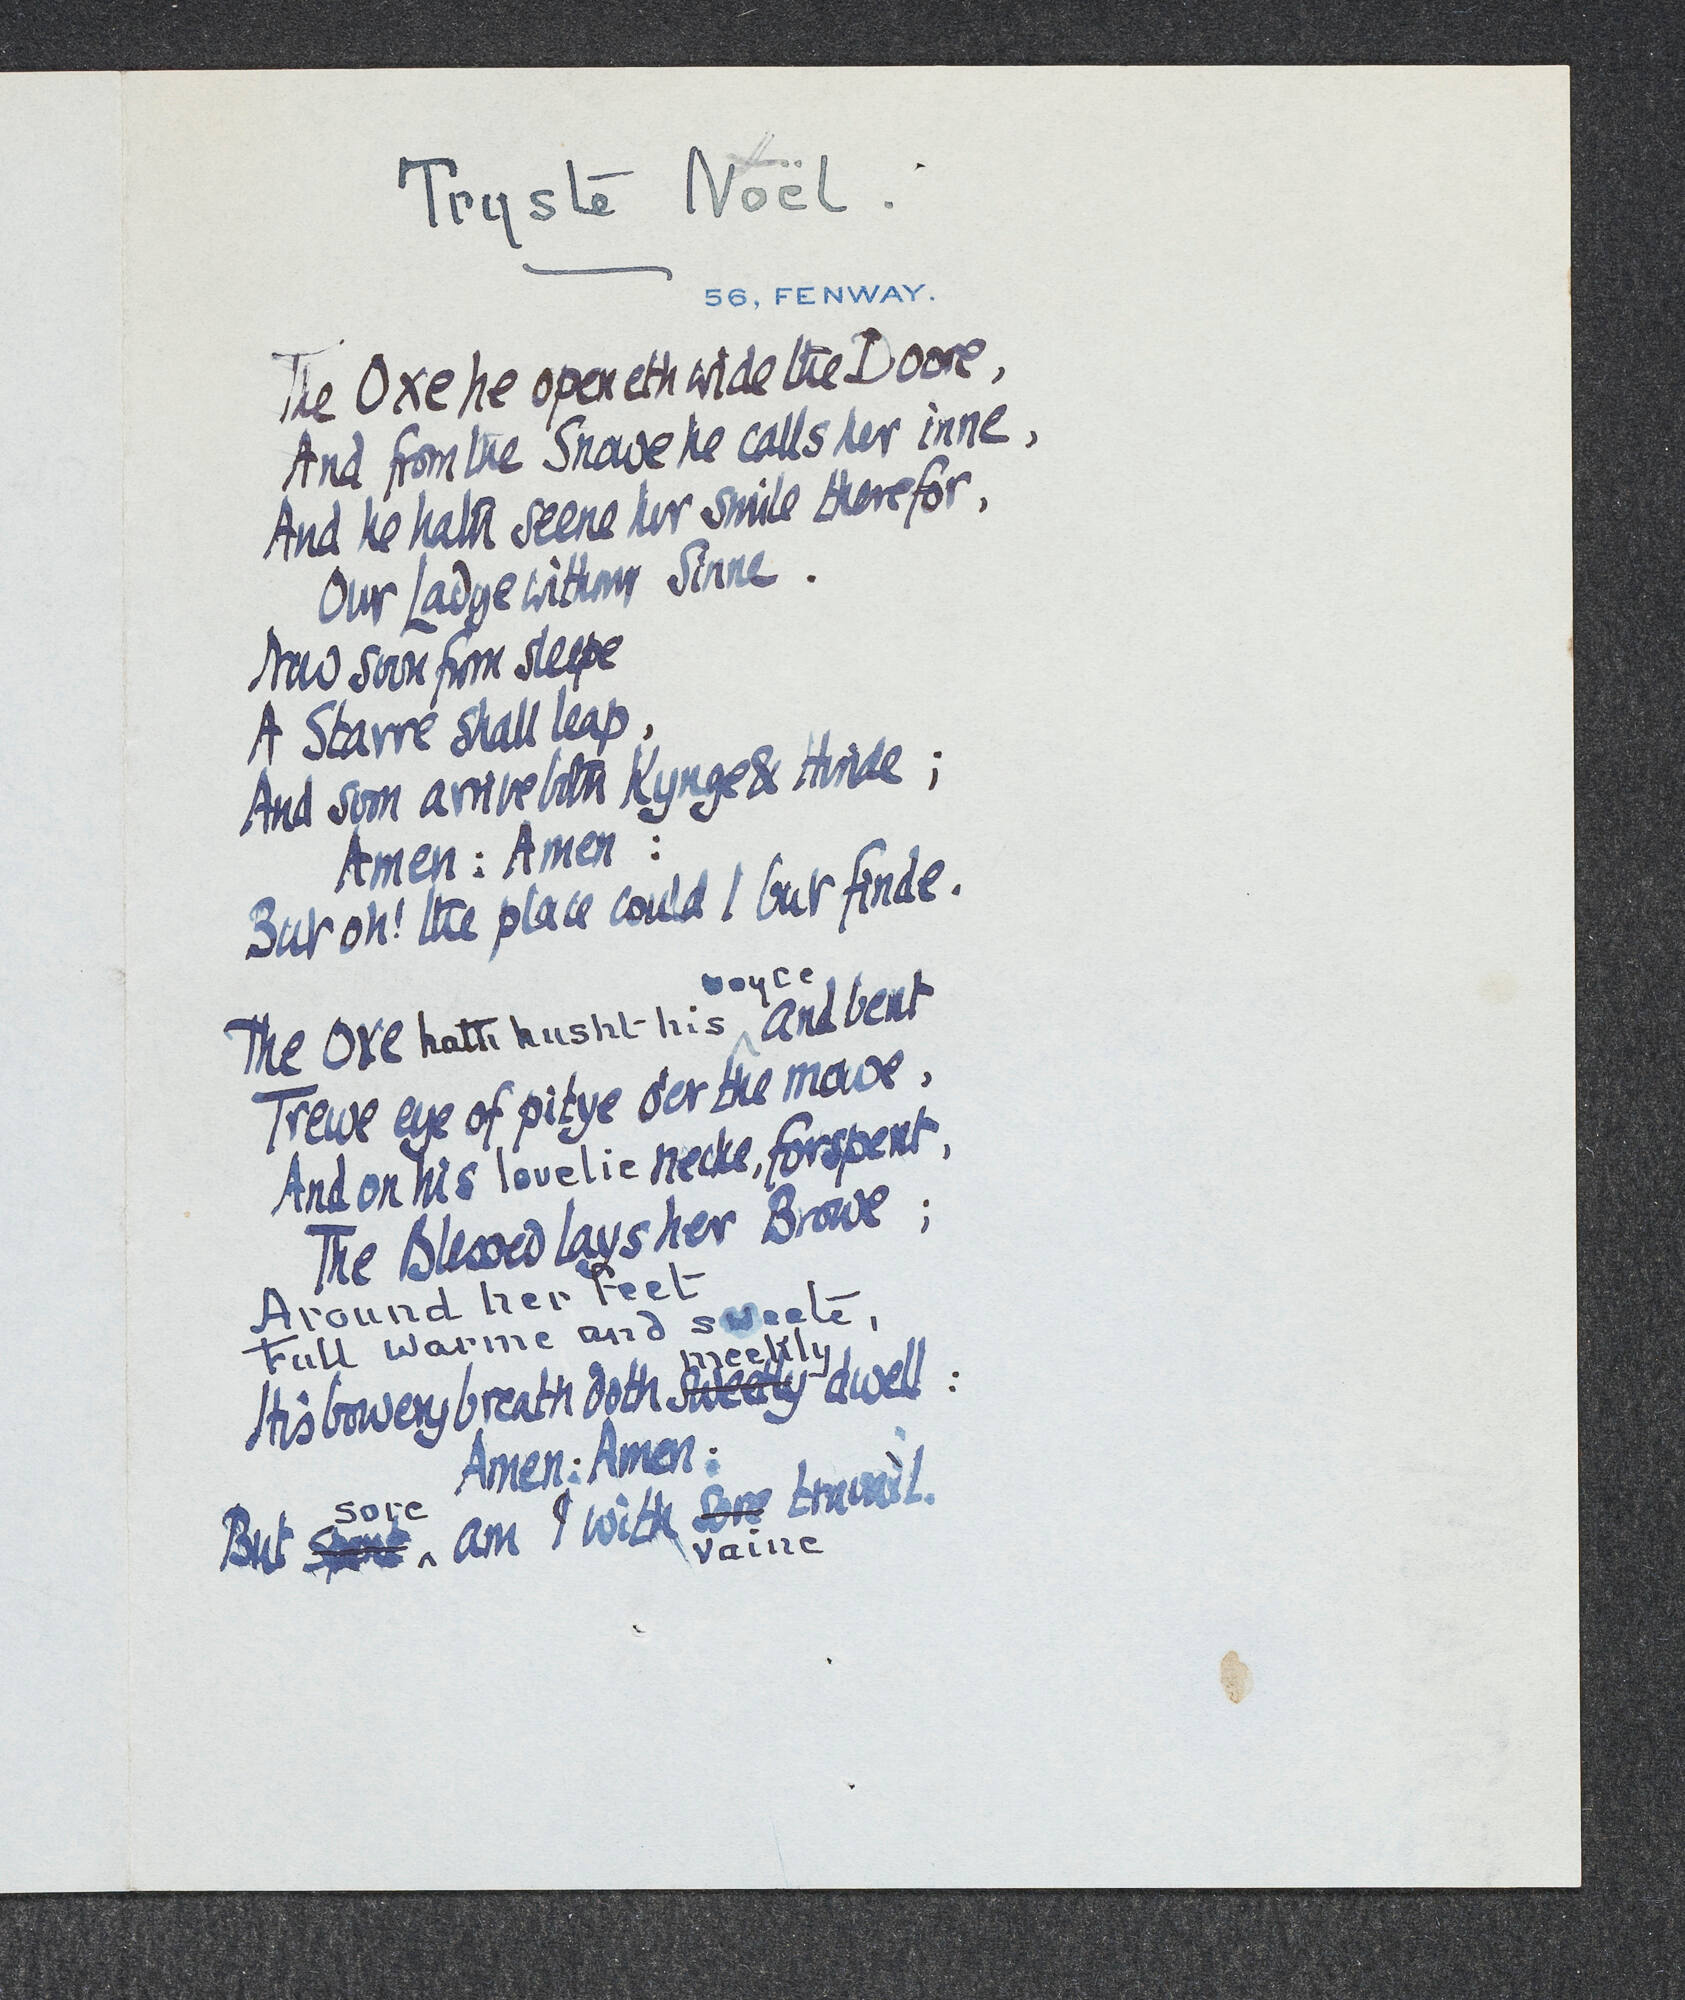 Tryste Noël.
56, FENWAY.
The Oxe he openeth wide the Doore,
And from the Snowe he calls her inne,
And he hath seene her smile therefor,
Our Ladye without Sinne.
Now soon from sleepe
A Starre shall leap,
And soon arrive both Kynge & Hinde;
Amen: Amen:
But oh! the place could I but finde.
voyce
The Oxe hath husht his ^ and bent
Trewe eye of pitye o'er the mowe,
And on his lovelie necke, forspent,
The Blessed lays her Browe;
Around her feet
Full warme and sweete,
meekly
His bowery breath doth sweetly dwell:
Amen: Amen:
sore
But ^ am I with sore travail.
vaine